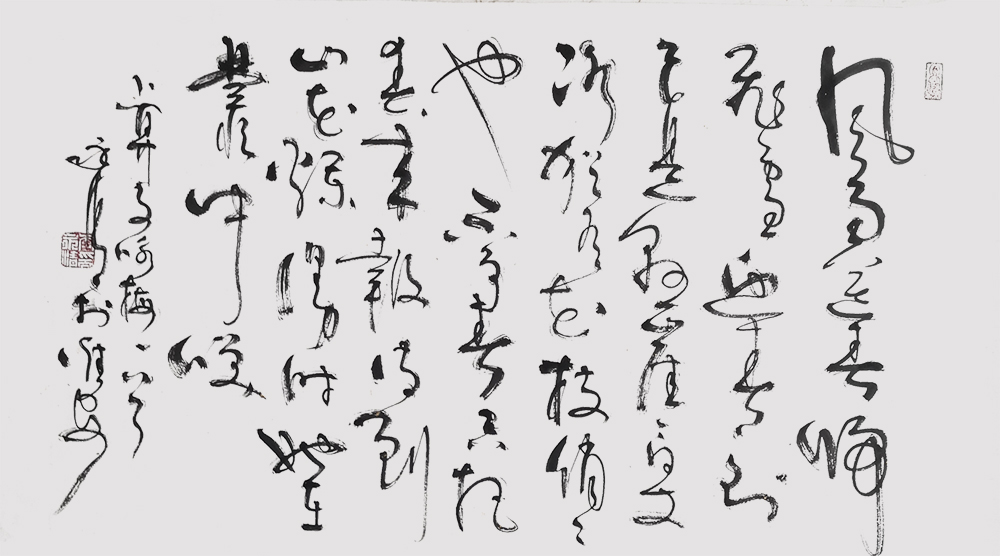 风雨送春归
飞雪迎春到
已是悬崖百丈
冰犹有花枝俏〻
也不争春只把
春来報待到
山花烂漫时她在
叢中咲
卜算子咏梅一首
于淮安